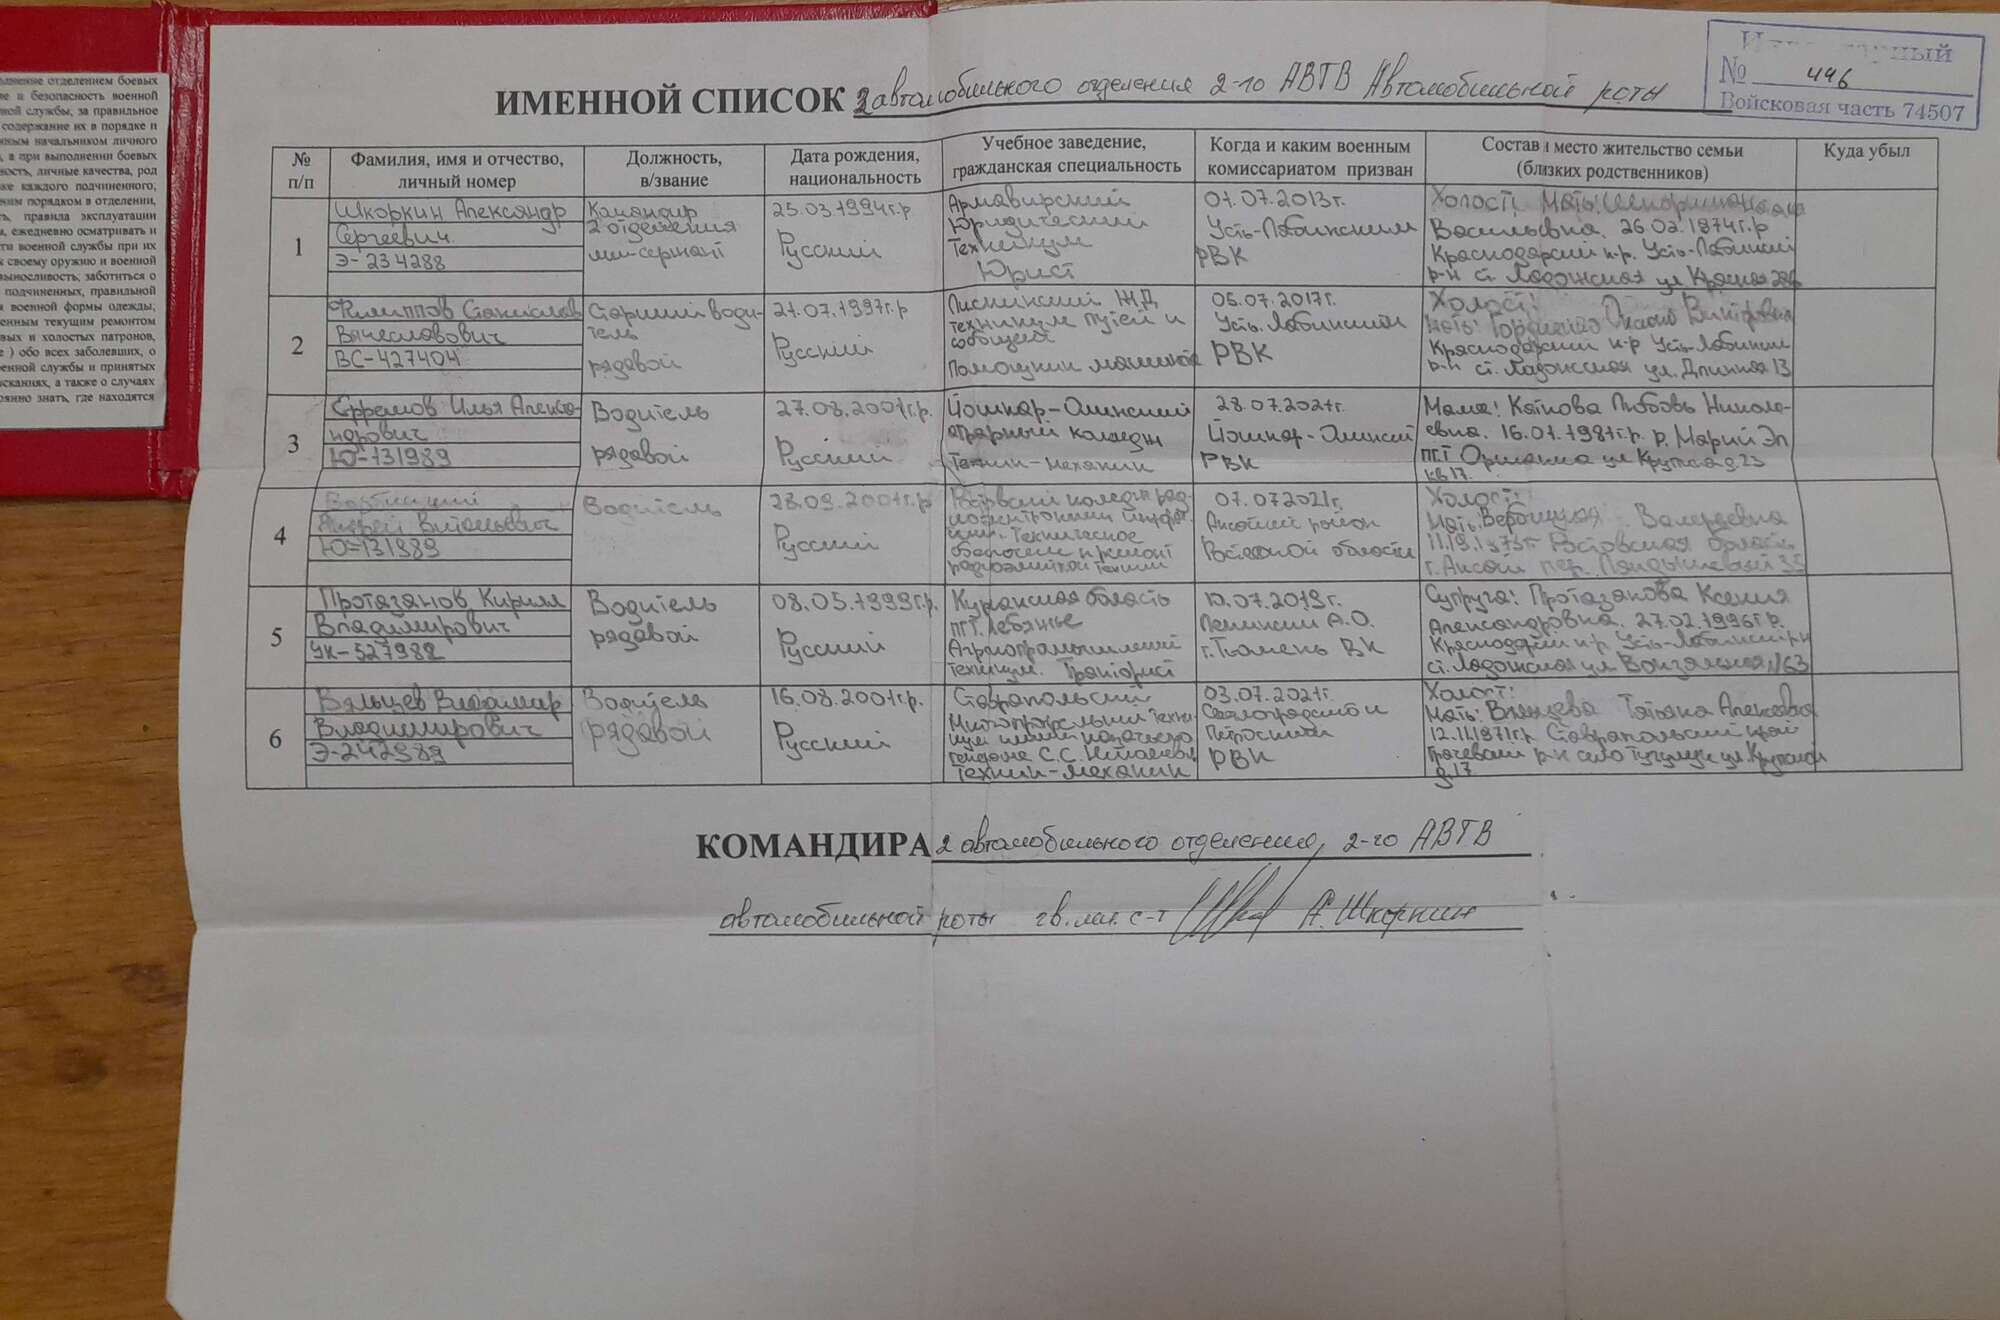 лнение отделением боевых
ие и безопасность военной
ной службы, за правильное
содержание их в порядке п
нным начальником личного
, а при выполнении боевых
ность, личные качества, род
же каждого подчиненного;
ним порядком в отделении,
ь, правила эксплуатации
а, ежедневно осматривать и
ти военной службы при их
к своему оружию и военной
выносливость; заботиться о
подчиненных, правильной
я военной формы одежды;
енным текущим ремонтом
вых и холостых патронов,
е ) обо всех заболевших, о
енной службы и принятых
сканиях, а также о случаях
оянно знать, где находятся
ИМЕННОЙ СПИСОК 2 автомобильного отделения 2-го АВТВ Автомобильной роты
№ 446
Войсковая часть 74507
№ п/п
Фамилия, имя и отчество,
личный номер
Должность,
в/звание
Дата рождения,
национальность
Учебное заведение,
гражданская специальность
Когда и каким военным
комиссариатом призван
Состав и место жительство семьи
(близких родственников)
Куда убыл
1
Шкоркин Александр
Сергеевич
Э-234288
Командир
2 отделения
мл-сержант
25.03.1994г.р
Русский
Армавирский
Юридический
Техникум
Юрист
01.07.2013г.
Усть-Лабинским
РВК
Холост, Мать:
Васильевна. 26.02.1974г.р
Краснодарский к-р. Усть-Лабинский
р-н ст. Ладожская ул Красная
2
Филиппов Станислав
Вячеславович
ВС-427404
Старший води-
тель
рядовой
21.07.1997г.р
Русский
ЖД
техникум путей и
сообщений
Помощник
05.07.2017г.
Усть-Лабинским
РВК
Холост:
Мать: Викторовна
Краснодарский к-р Усть-Лабинский
р-н ст. Ладожская ул. Длинная 13
3
Ефремов Илья Алекса-
ндрович
Ю-131989
Водитель
рядовой
27.08.2001г.р.
Русский
Йошкар-Олинский
аграрный колледж
Техник-механик
28.07.2021г.
Йошкар-Олинский
РВК
Мама: Каткова Любовь Никола-
евна. 16.01.1981г.р. р. Марий Эл
пгт Оршанка ул Крупская д.23
кв 17.
4
Андрей Витальевич
Ю-131989
Водитель
28.09.2001г.р
Русский
Техническое
и ремонт
07.07.2021г.
Аксайский район
Ростовской области
Холост:
Мать: Вербицкая Валерьевна
Ростовская область
г. Аксай пер.
5
Протазанов Кирилл
Владимирович
УК-527982
Водитель
рядовой
08.05.1999г.р.
Русский
Курганская область
пгт. Лебяжье
Агропромышленный
техникум. Тракторист
10.07.2019г.
Ленинский А.О.
г. Тюмень ВК
Супруга: Протазанова Ксения
Александровна. 27.02.1996г.р.
Краснодарский к-р. Усть-Лабинский р-н
ст. Ладожская ул Вокзальная,
6
Вяльцев Владимир
Владимирович
Э-242989
Водитель
рядовой
16.08.2001г.р.
Русский
Ставропольский
Техник-механик
03.07.2021г.
РВК
Холост:
Мать: Татьяна Алексеевна
12.11.1971г.р. Ставропольский край
р-н село ул.
д.17
КОМАНДИРА 2 автомобильного отделения, 2-го АВТВ
автомобильной роты гв. мл. с-т А. Шкоркин